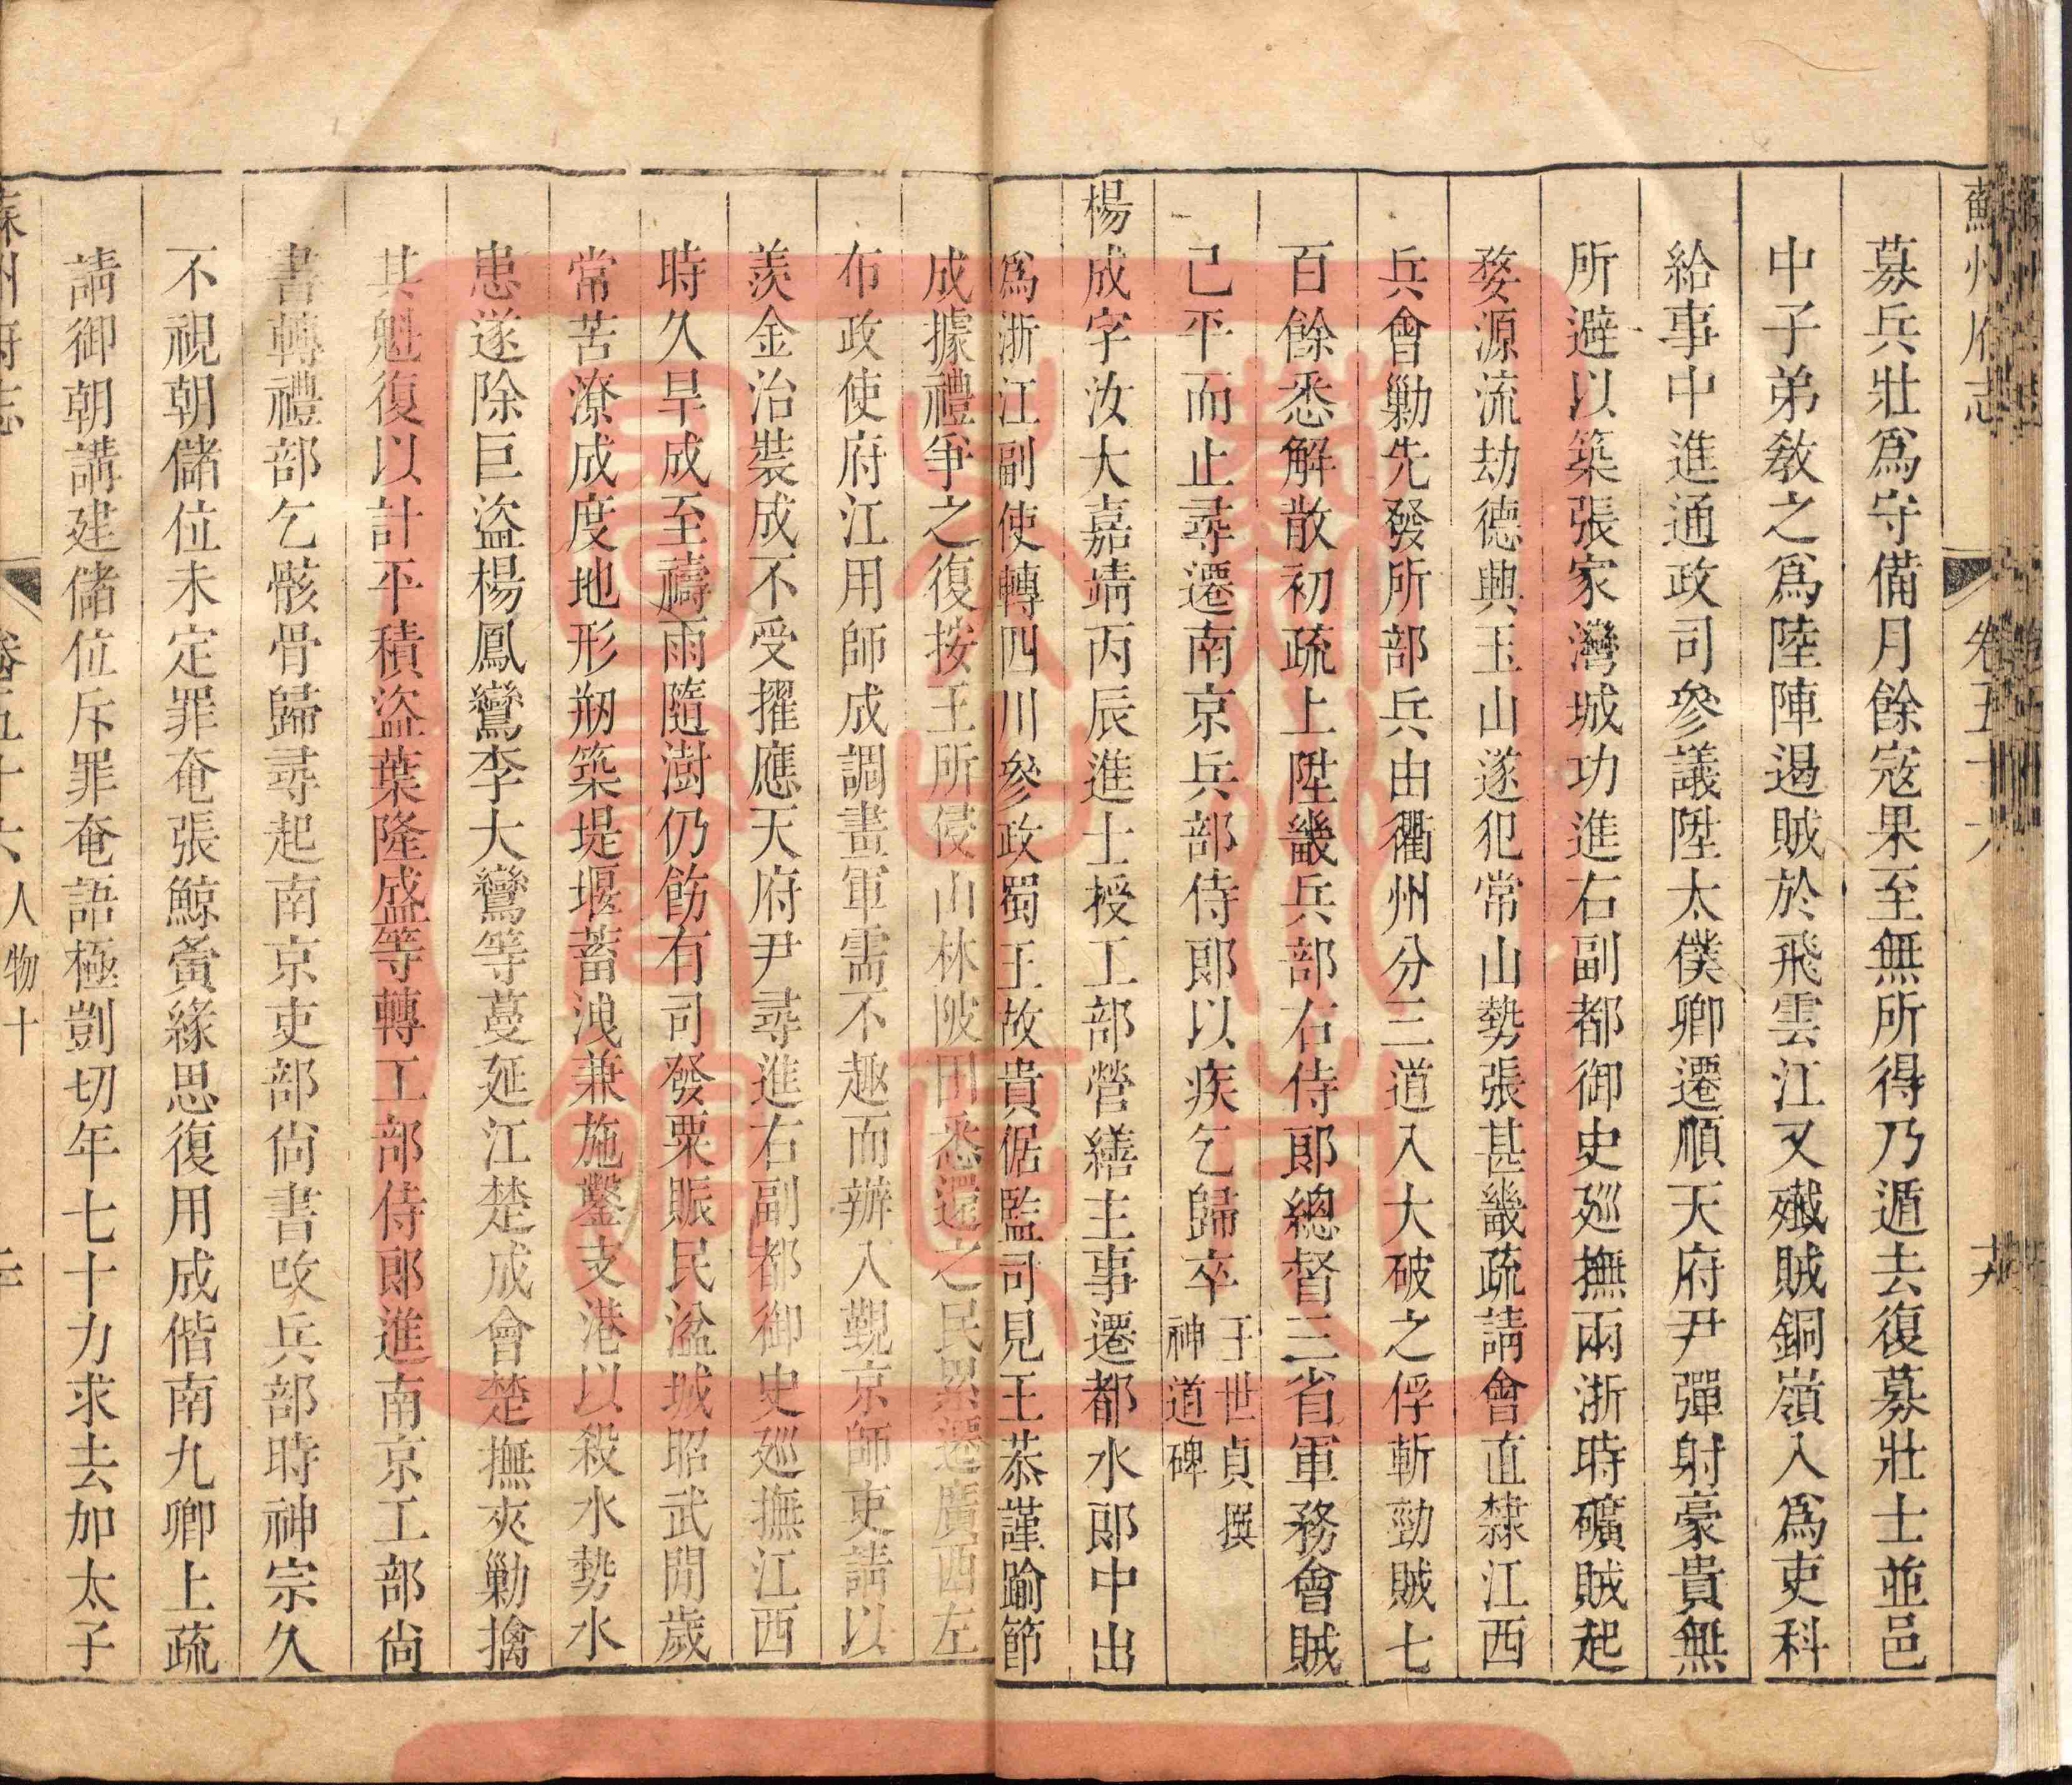 蘇州府志 卷五十六
募兵壯爲守備月餘寇果至無所得乃遁去復募壯士並邑
中子弟敎之爲陸陣遏賊於飛雲江又殱賊銅嶺入爲吏科
給事中進通政司參議陞太僕卿遷順天府尹彈射豪貴無
所避以築張家灣城功進右副都御史廵撫兩浙時礦賊起
婺源流劫德興玉山遂犯常山勢張甚畿疏請會直隸江西
兵會勦先發所部兵由衢州分三道入大破之俘斬勁賊七
百餘悉解散初疏上陞畿兵部右侍郞總督三省軍務會賊
已平而止尋遷南京兵部侍郞以疾乞歸卒王世貞撰
神道碑
楊成字汝大嘉靖丙辰進士授工部營繕主事遷都水郞中出
爲浙江副使轉四川參政蜀王故貴倨監司見王恭謹踰節
成據禮爭之復按王所侵山林陂田悉還之民累遷廣西左
布政使府江用師成調畫軍需不趣而辦入覲京師吏請以
羨金治裝成不受擢應天府尹尋進右副都御史廵撫江西
時久旱成至禱雨隨澍仍飭有司發粟賑民湓城昭武閒歲
常苦潦成度地形剏築堤堰蓄洩兼施鑿支港以殺水勢水
患遂除巨盜楊鳳鸞李大鸞等蔓延江楚成會楚撫夾勦擒
其魁復以計平積盜葉隆盛等轉工部侍郞進南京工部尙
書轉禮部乞骸骨歸尋起南京吏部尙書改兵部時神宗久
不視朝儲位未定罪奄張鯨夤緣思復用成偕南九卿上疏
請御朝講建儲位斥罪奄語極剴切年七十力求去加太子
州府志 卷五十六 人物十